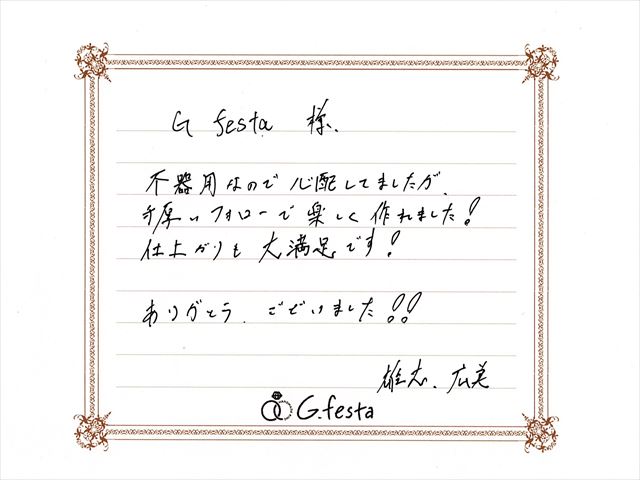 G festa 様、
不器用なので心配してましたが、
手厚いフォローで楽しく作れました!
仕上がりも大満足です!
ありがとう、ございました!!
雄志、広美
G.festa